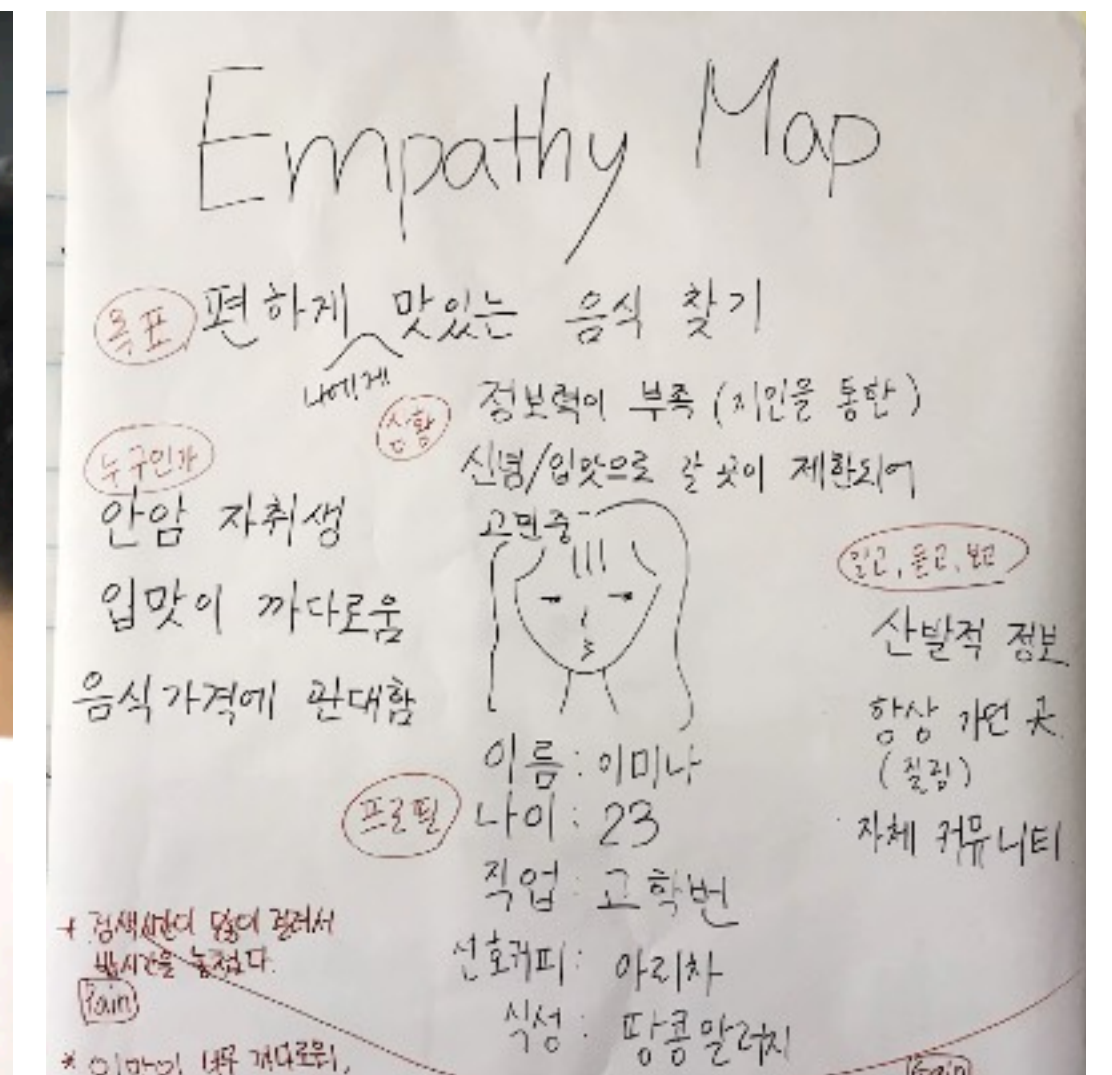 Empathy Map
목표 편하게 맛있는 음식 찾기
나에게
상황 정보력이 부족 (지인을 통한)
신념/입맛으로 갈 곳이 제한되어
고민중
누구인가
안암 자취생
입맛이 까다로움
음식가격에 관대함
읽고, 듣고, 보고
산발적 정보
항상 가던 곳
(질림)
자체 커뮤니티
프로필
이름 : 이미나
나이 : 23
직업 : 고학번
선호커피 : 아리차
식성 : 땅콩알러지
+ 검색시간이 많이 걸려서
밥시간을 놓쳤다.
Pain
* 입맛이 너무 까다로워,
Gain